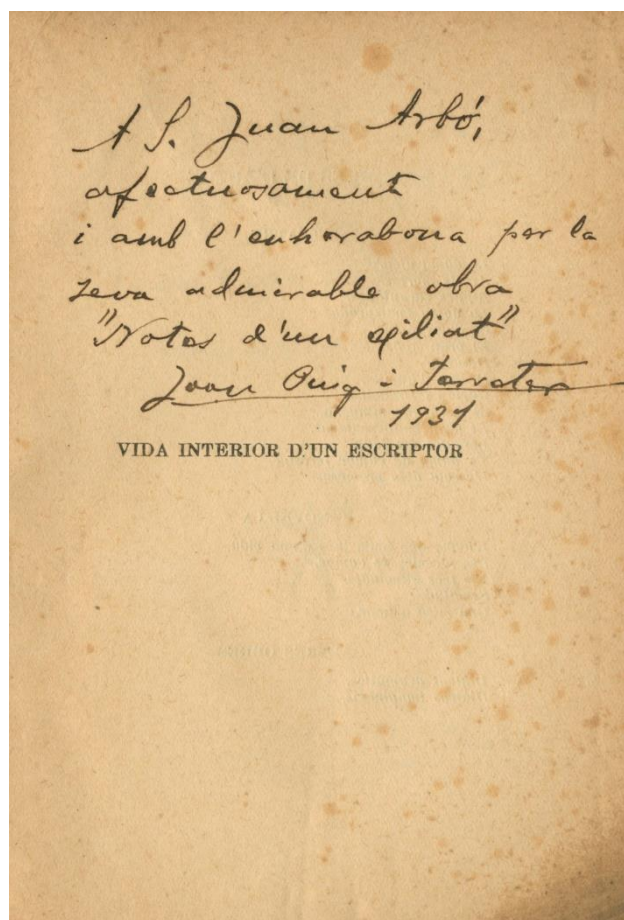 A S. Juan Arbó,
afectuosament
i amb l'enhorabona per la
seva admirable obra
"Notes d'un exiliat"
Joan Puig i Ferreter
1931
VIDA INTERIOR D'UN ESCRIPTOR